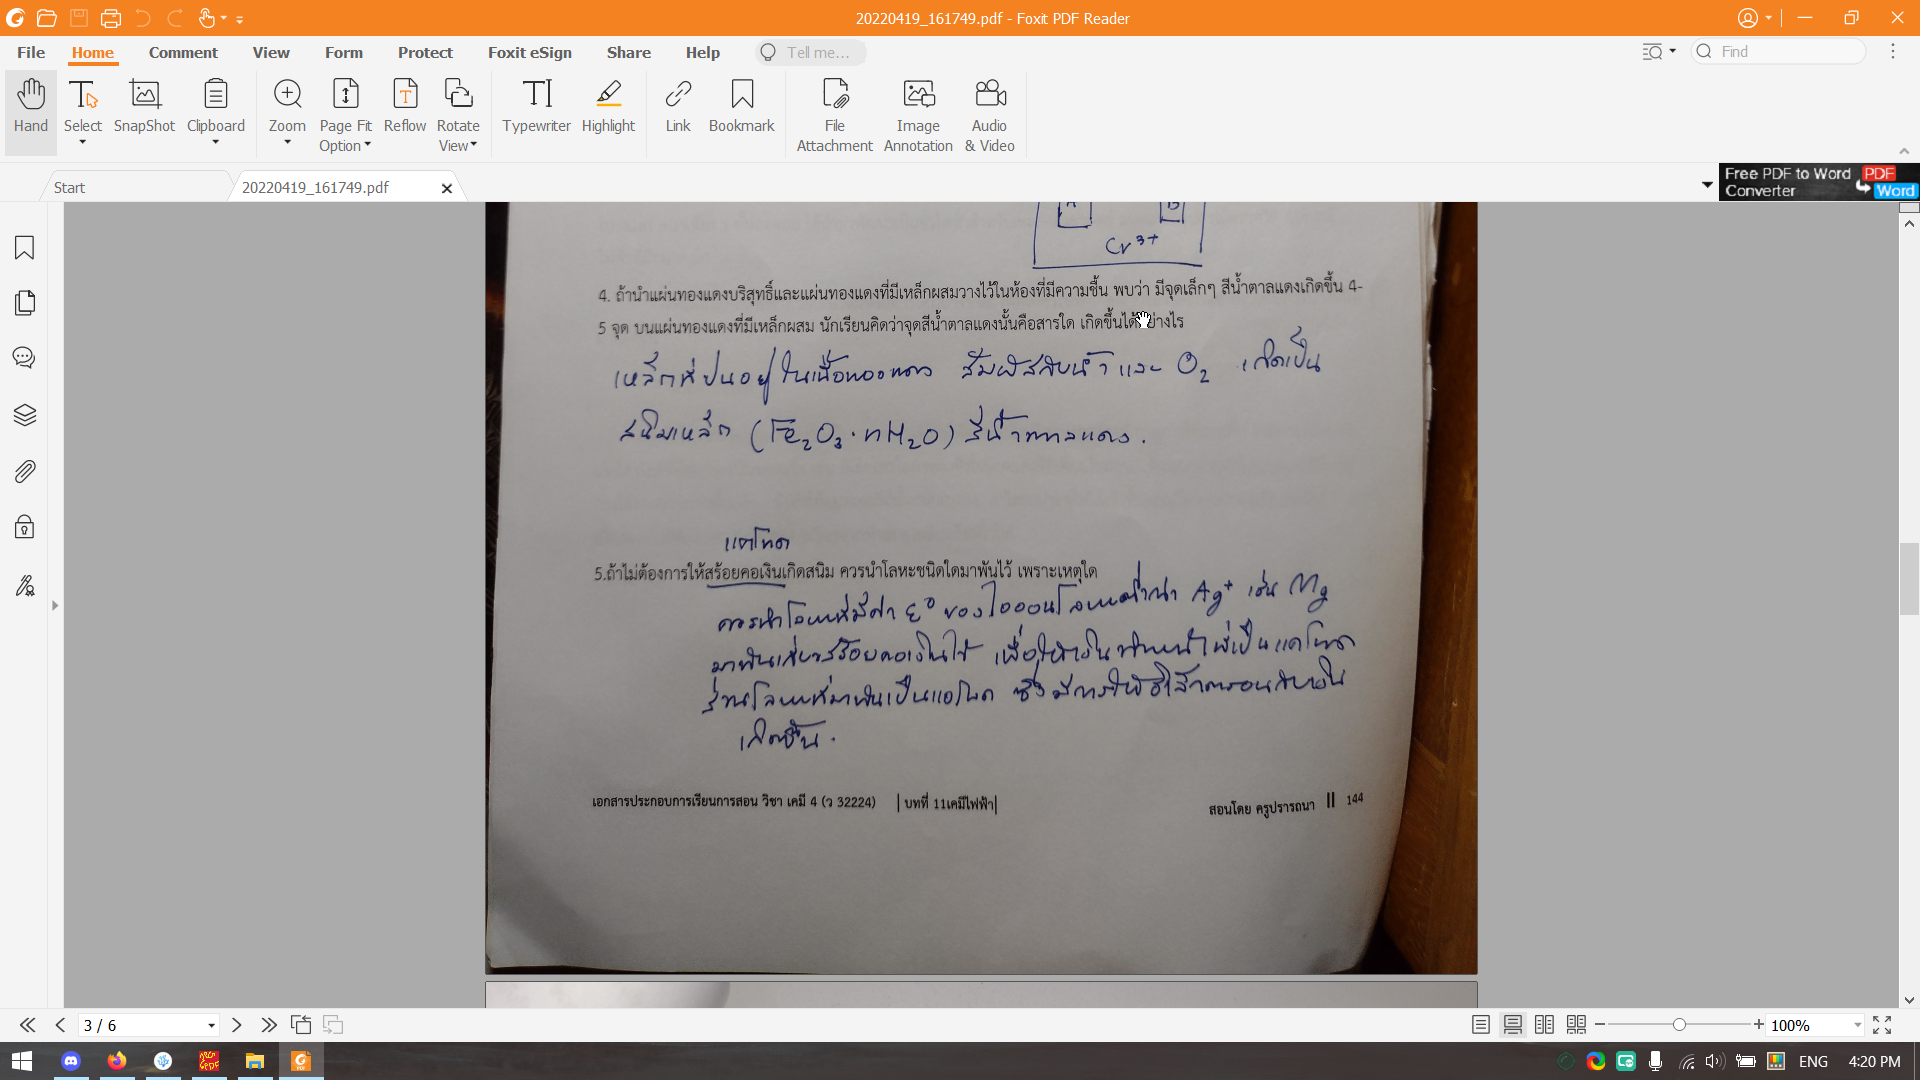 20220419_161749.pdf - Foxit PDF Reader
File Home Comment View Form Protect Foxit eSign Share Help Tell me... Find
Hand Select SnapShot Clipboard Zoom Page Fit Option Reflow Rotate View Typewriter Highlight Link Bookmark File Attachment Image Annotation Audio & Video
Start 20220419_161749.pdf
Free PDF to Word Converter PDF Word
Cr³⁺
4. ถ้านำแผ่นทองแดงบริสุทธิ์และแผ่นทองแดงที่มีเหล็กผสมวางไว้ในห้องที่มีความชื้น พบว่า มีจุดเล็กๆ สีน้ำตาลแดงเกิดขึ้น 4-
5 จุด บนแผ่นทองแดงที่มีเหล็กผสม นักเรียนคิดว่าจุดสีน้ำตาลแดงนั้นคือสารใด เกิดขึ้นได้อย่างไร
เหล็กที่ปนอยู่ในเนื้อทองแดง สัมผัสกับน้ำ และ O₂ เกิดเป็น
สนิมเหล็ก (Fe₂O₃·nH₂O) สีน้ำตาลแดง.
แคโทด
5.ถ้าไม่ต้องการให้สร้อยคอเงินเกิดสนิม ควรนำโลหะชนิดใดมาพันไว้ เพราะเหตุใด
ควรนำโลหะที่มีค่า E⁰ ของไอออนโลหะต่ำกว่า Ag⁺ เช่น Mg
มาพันสร้อยคอเงินไว้ เพื่อให้เงินทำหน้าที่เป็นแคโทด
ส่วนโลหะที่มาพันเป็นแอโนด ซึ่งมีการให้อิเล็กตรอน
เกิดขึ้น.
เอกสารประกอบการเรียนการสอน วิชา เคมี 4 (ว 32224) | บทที่ 11เคมีไฟฟ้า| สอนโดย ครูปรารถนา || 144
3 / 6 100%
ENG 4:20 PM